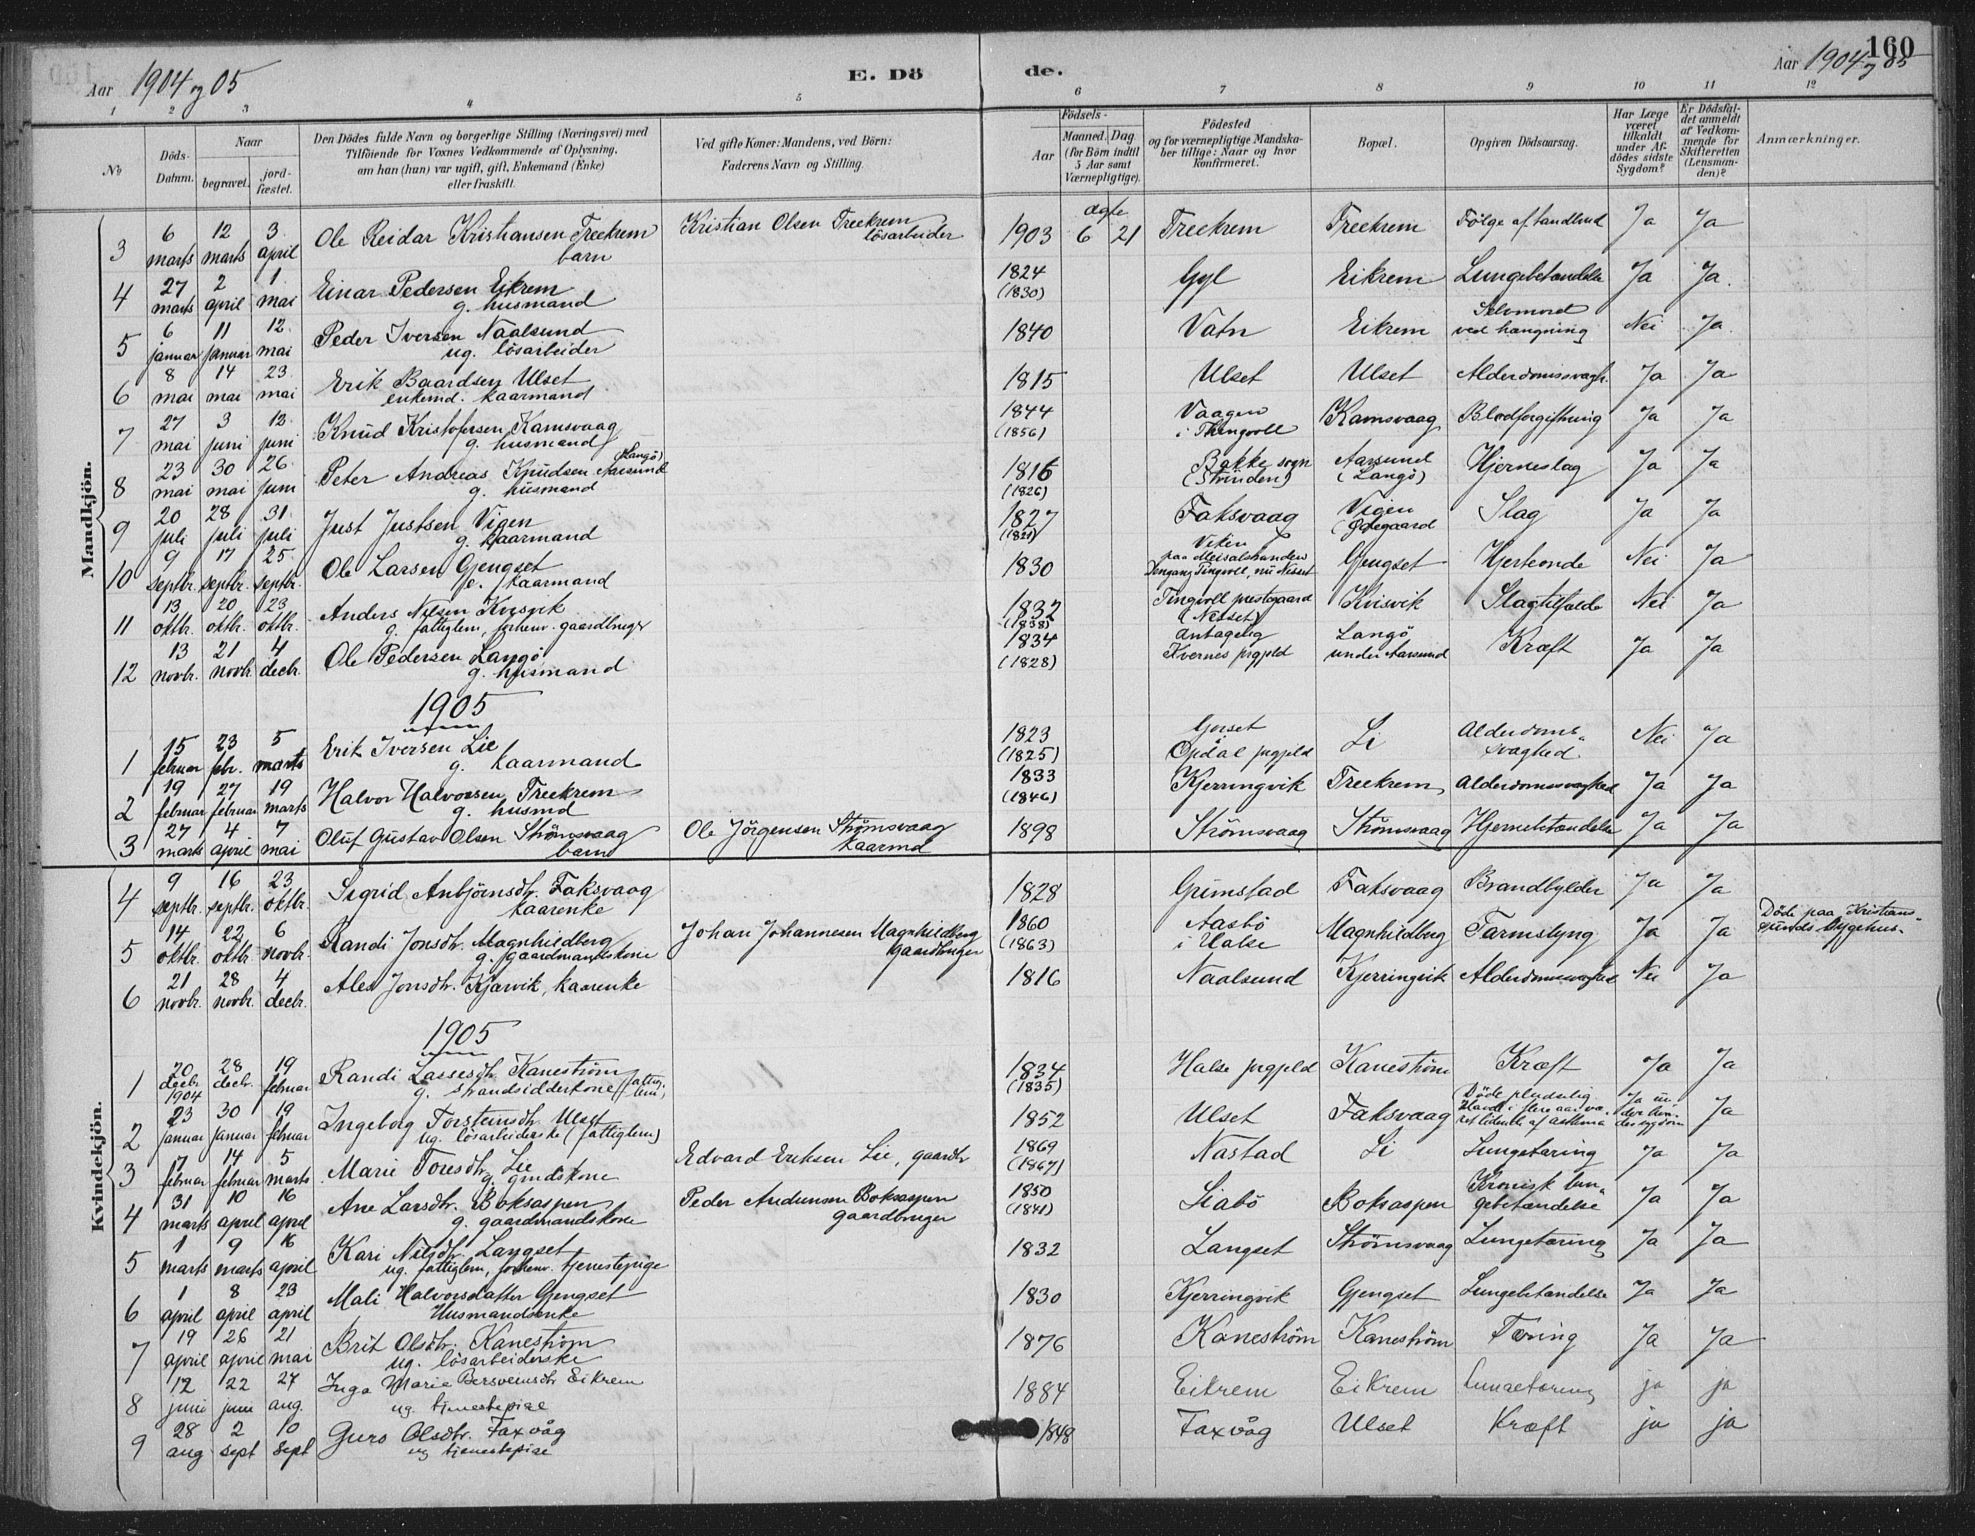 160
Aar 1904 og 05
E. Dö
de.
Aar 1904 og 05
1 2 3 4 5 6 7 8 9 10 11 12
No
Döds-Datum.
Naar
begravet.
jord-fæstet.
Den Dödes fulde Navn og borgerlige Stilling (Næringsvei) med
Tilföiende for Voxnes Vedkommende af Oplysning,
om han (hun) var ugift, gift, Enkemand (Enke)
eller fraskilt.
Ved gifte Koner: Mandens, ved Börn:
Faderens Navn og Stilling.
Födsels-
Aar
Maaned. Dag.
(for Börn indtil
5 Aar samt
Værnepligtige).
Födested
og for værnepligtige Mandska-
ber tillige: Naar og hvor
Konfirmeret.
Bopæl.
Opgiven Dödsaarsag.
Har Læge
været
tilkaldt
under Af-
dödes sidste
Sygdom?
Er Dödsfal-
det anmeldt
af Vedkom-
mende for
Skifteretten
(Lensman-
den)?
Anmærkninger.
Mandkjön.
3 6 marts 12 marts 3 april Ole Reidar Kristiansen Treekrem barn Kristian Olsen Treekrem lösarbeider 1903 ægte 6 21 Treekrem Treekrem Fölge af tandbrud Ja Ja
4 27 marts 2 april 1 mai Einar Pedersen Eikrem g. husmand 1824 (1830) Gyl Eikrem Lungebetændelse Ja Ja.
5 6 januar 11 januar 12. mai Peder Iversen Naalsund ug. lösarbeider 1840 Vatn Eikrem Selvmord ved hængning Nei Ja
6 8 mai 14 mai 23. mai Erik Baardsen Ulset enkemd. kaarmand 1815 Ulset Ulset Alderdomssvagh. Ja Ja
7 27 mai 3 juni 12. juni Knud Kristofersen Kamsvaag g. husmand 1844 (1856) Vaagen i Thingvoll Kamsvaag Blodforgiftning Ja Ja
8 23 mai 30 mai 26. juni Peter Andreas Knudsen Aarsund (Langö) g. husmand 1816 (1826) Bakke sogn (Strinden) Aarsund (Langö) Hjerneslag Ja Ja
9 20 juli 28 juli 31. juli Just Justsen Vigen g. kaarmand 1827 Faksvaag Vigen (Ødegaard Slag Ja Ja
10 9 septbr. 17 septbr. 25 septbr. Ole Larsen Gjengset kaarmand 1830 Viken paa Meisalstranden dengang Tingvoll, nu Nesset Gjengset Hjerteonde Nei Ja
11 13 oktbr. 20 oktbr. 23 oktbr. Anders Nilsen Kvisvik g. fattiglem, forhenv. gaardbruger 1832 (1838) Tingvoll prestegaard (Nesset) Kvisvik Slagtilfælde Nei Ja
12 13 novbr. 21 novbr. 4 decbr. Ole Pedersen Langö g. husmand 1834 (1828) antagelig Kvernes prgjeld Langö under Aarsund Kræft Ja Ja
1905
1 15 februar 23 febr. 5 marts Erik Iversen Lie g. kaarmand 1823 (1825) Opdal prgjeld Li Alderdoms-svaghed. Nei Ja
2 19 februar 27 februar 19 marts Halvor Halvorsen Treekrem g. husmd 1833 (1846) Kjerringvik Treekrem Alderdomssvaghed Ja Ja
3 27 marts 4 april 7 mai Oluf Gustav Olsen Strömsvaag barn Ole Jörgensen Strömsvaag kaarmd 1898 Strömsvaag Strömsvaag Hjernebetændelse Ja Ja
Kvindekjön.
4 9 septbr. 16 septbr. 23 oktbr. Sigrid Anbjörnsdtr. Faksvaag kaarenke 1828 Grimstad Faksvaag Brandbylder Ja Ja
5 14 oktbr. 22 oktbr. 6 novbr. Randi Jonsdtr. Magnhildberg g. gaardmandskone Johan Johannesen Magnhildberg gaardbruger 1860 (1863) Aasbö i Halse Magnhildberg Tarmslyng Ja Ja Döde paa Kristians-sunds Sygehus.
6 21 novbr. 28 novbr. 4 decbr. Ales Jonsdtr. Kjørvik, kaarenke 1816 Naalsund Kjerringvik Alderdomssvaghed Nei Ja
1905
1 20 decbr 1904 28 decbr. 19 februar Randi Lassesdtr. Kaneström g. strandsidderkone (fattiglem) 1834 (1835) Halse prgjeld Kaneström Kræft Ja Ja
2 23 januar 30 januar 19 februar Ingeborg Torsteinsdtr Ulset ug. lösarbeiderske (fattiglem) 1852 Ulset Faksvaag Döde pludselig. Havde i flere aar været lidende af astma Ja
3 7 februar 14 februar 5 marts Marie Toresdtr. Lie g. gmdskone Edvard Eriksen Lie, gaardbr 1869 (1867) Nastad Li Lungetæring Ja Ja
4 31 marts 10 april 16 april Ane Larsdtr. Boksaspen g. gaardmandskone Peder Andersen Boksaspen gaardbruger 1850 (1841) Liabö Boksaspen Kronisk lun-gebetændelse Ja Ja
5 1 marts 9 marts 16 april Kari Nilsdtr. Langset ug. fattiglem, forhenv. tjenestepige 1832 Langset Strömsvaag Lungetæring Ja Ja
6 1 april 8 april 23 april Mali Halvorsdatter Gjengset Husmandsenke 1830 Kjerringvik Gjengset Lungebetændelse Ja Ja
7 19 april 26 april 21 mai Brit Olsdtr. Kaneström ug. lösarbeiderske 1876 Kaneström Kaneström Tæring Ja Ja
8 12 juni 22 juni 27 aug. Inga Marie Bersveinsdtr Eikrem ug. tjenestepige 1884 Eikrem Eikrem Lungetæring ja ja
9 28 aug 2 sept 10 sept Guro Olsdtr. Faxvåg ug tjenestepige 1848 Faxvåg Ulset Kræft ja ja